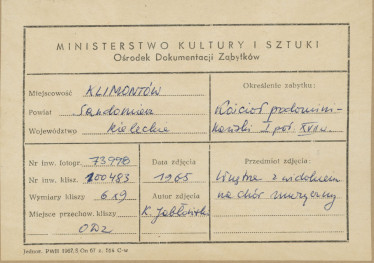 MINISTERSTWO KULTURY I SZTUKI
Ośrodek Dokumentacji Zabytków
Miejscowość KLIMONTÓW
Powiat Sandomierz
Województwo Kieleckie
Określenie zabytku:
Kościół podomini-
kański I poł. XVII w.
Nr inw. fotogr. 73998
Nr inw. klisz. 100483
Wymiary kliszy 6x9
Miejsce przechow. kliszy
ODZ
Data zdjęcia
1965
Autor zdjęcia
K. Jabłoński
Przedmiot zdjęcia:
Wnętrze z widokiem
na chór muzyczny
Jednor. PWB 1967/5 Om 67 z. 514 C-w